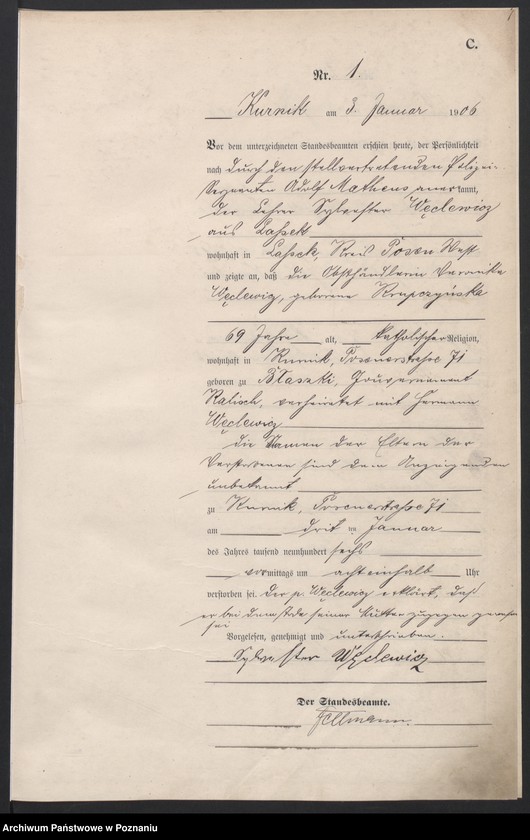 C.
Nr. 1.
Kurnik am 3. Januar 1906
Vor dem unterzeichneten Standesbeamten erschien heute, der Persönlichkeit
nach durch den stellvertretenden Polizei-
Sergeanten Adolf Matheus anerkannt,
der Lehrer Sylvester Węclewicz
aus Lassek
wohnhaft in Lassek, Kreis Posen West
und zeigte an, daß die Obsthändlerin Veronika
Węclewicz, geborene Krupczyńska
69 Jahre alt, katholischer Religion,
wohnhaft in Kurnik, Posenerstraße 71
geboren zu Błaszki, Gouvernement
Kalisch, verheiratet mit Hermann
Węclewicz
die Namen der Eltern der
Verstorbenen sind dem Anzeigenden
unbekannt
zu Kurnik, Posenerstraße 71
am drit ten Januar
des Jahres tausend neunhundert sechs
vormittags um achteinhalb Uhr
verstorben sei. Der p. Węclewicz erklärt, daß
er bei dem Tode seiner Mutter zugegen gewesen
sei
Vorgelesen, genehmigt und unterschrieben.
Sylvester Węclewicz
Der Standesbeamte.
Archiwum Państwowe w Poznaniu